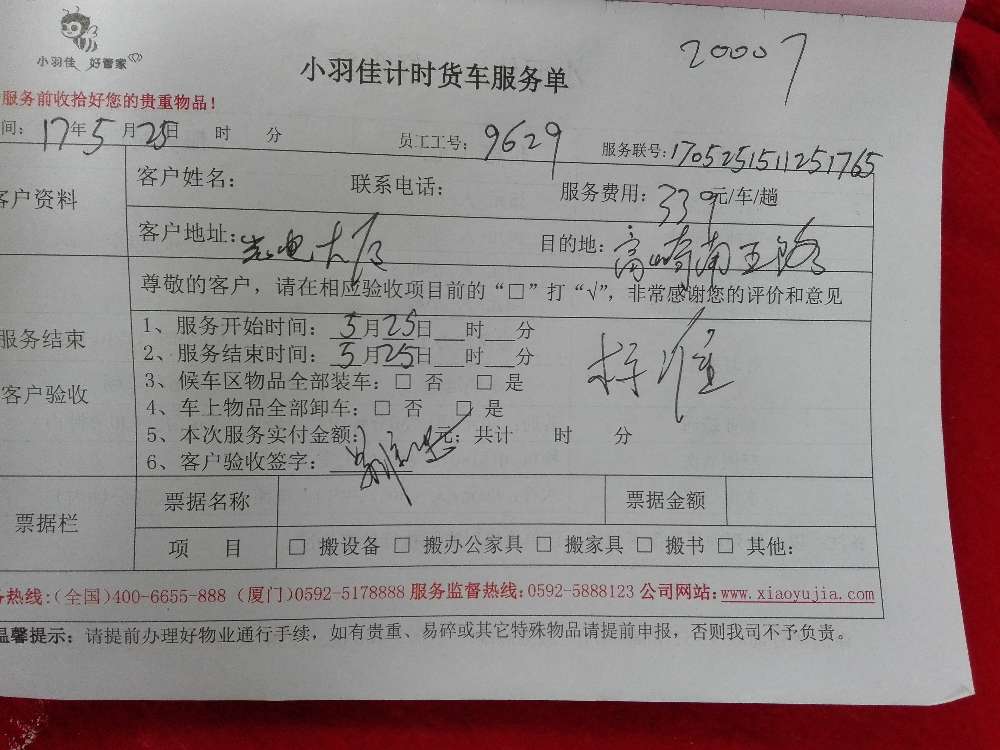 小羽佳 好管家
小羽佳计时货车服务单
20007
服务前收拾好您的贵重物品！
间：17年5月25日 时 分 员工工号：9629 服务联号：1705251511251765
客户资料
客户姓名： 联系电话： 服务费用：339元/车/趟
客户地址：光电大厦 目的地：高崎南五路
尊敬的客户，请在相应验收项目前的“□”打“√”，非常感谢您的评价和意见
服务结束
客户验收
1、服务开始时间：5月25日 时 分
2、服务结束时间：5月25日 时 分
标准
3、候车区物品全部装车：□ 否 □ 是
4、车上物品全部卸车：□ 否 □ 是
5、本次服务实付金额： 元；共计 时 分
6、客户验收签字：
票据栏
票据名称 票据金额
项 目 □ 搬设备 □ 搬办公家具 □ 搬家具 □ 搬书 □ 其他：
务热线：（全国）400-6655-888（厦门）0592-5178888 服务监督热线：0592-5888123 公司网站：www.xiaoyujia.com
温馨提示：请提前办理好物业通行手续，如有贵重、易碎或其它特殊物品请提前申报，否则我司不予负责。